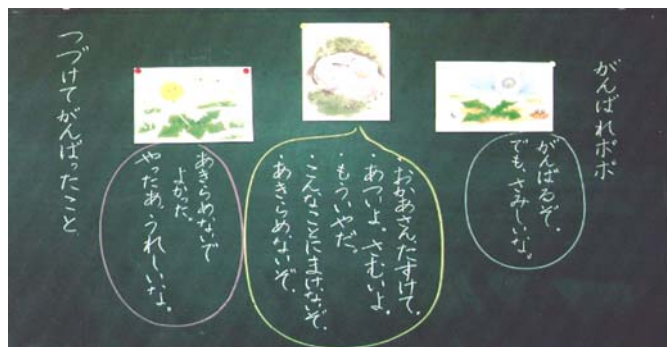 がんばれポポ
がんばるぞ。
でも、さみしいな。
・おかあさんたすけて。
・あついよ。さむいよ。
・もういやだ。
・こんなことにまけないぞ。
・あきらめないぞ。
あきらめないで
よかった。
やったあ、うれしいなあ。
つづけてがんばったこと